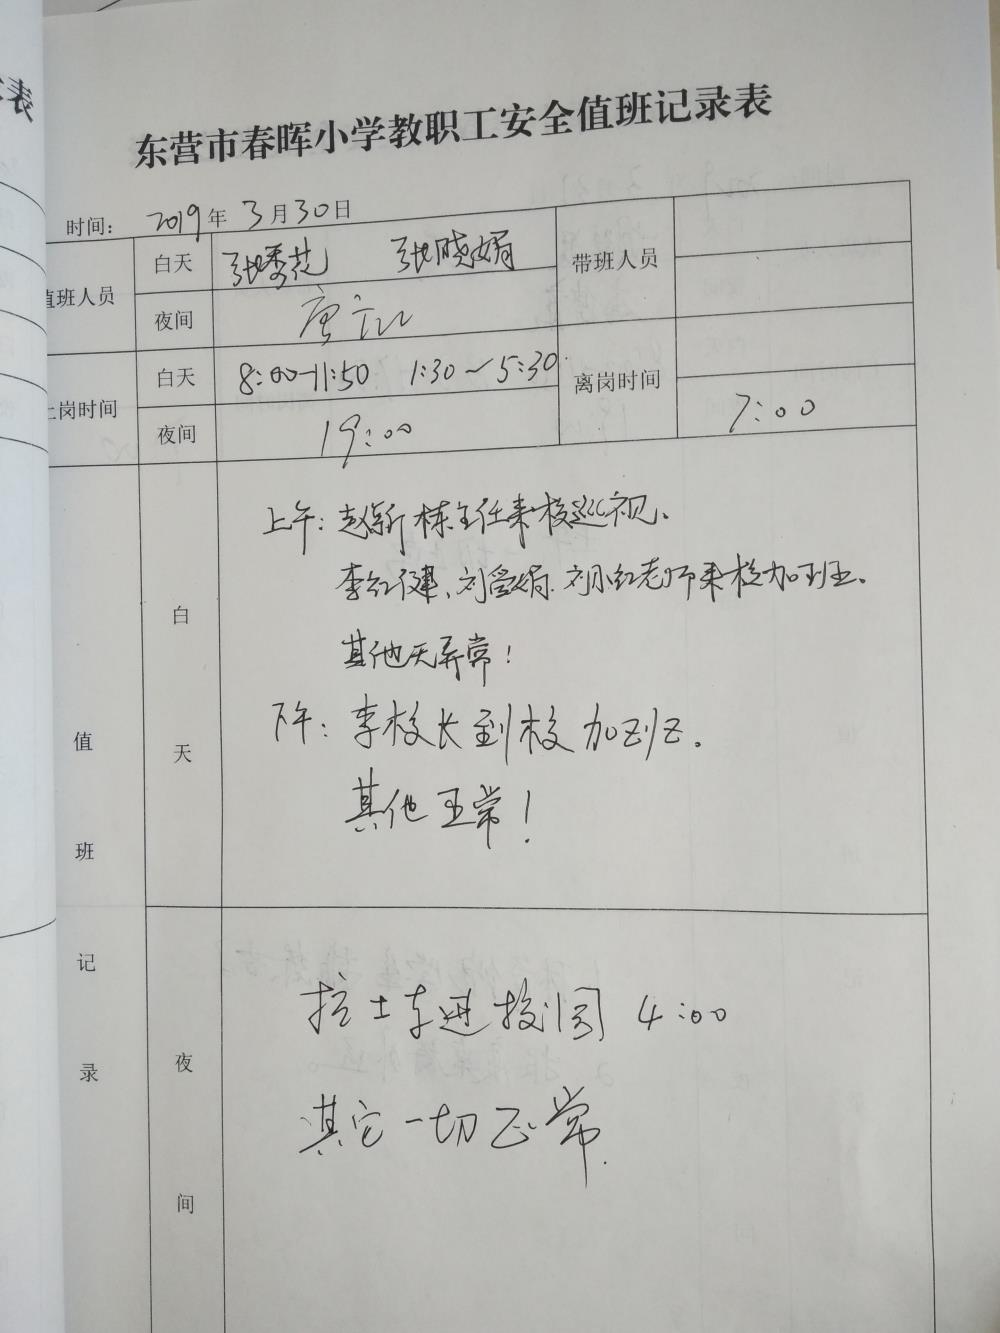 东营市春晖小学教职工安全值班记录表
时间： 2019年 3月30日
值班人员 白天 张秀花 张晓娟 带班人员
夜间 唐
上岗时间 白天 8:00-11:50 1:30~5:30 离岗时间
夜间 19:00 7:00
值班记录
白天
上午：赵新栋主任来校巡视。
李红健、刘爱娟、刘小红老师来校加班。
其他无异常！
下午：李校长到校加班。
其他正常！
夜间
拉土车进校园 4:00
其它一切正常.